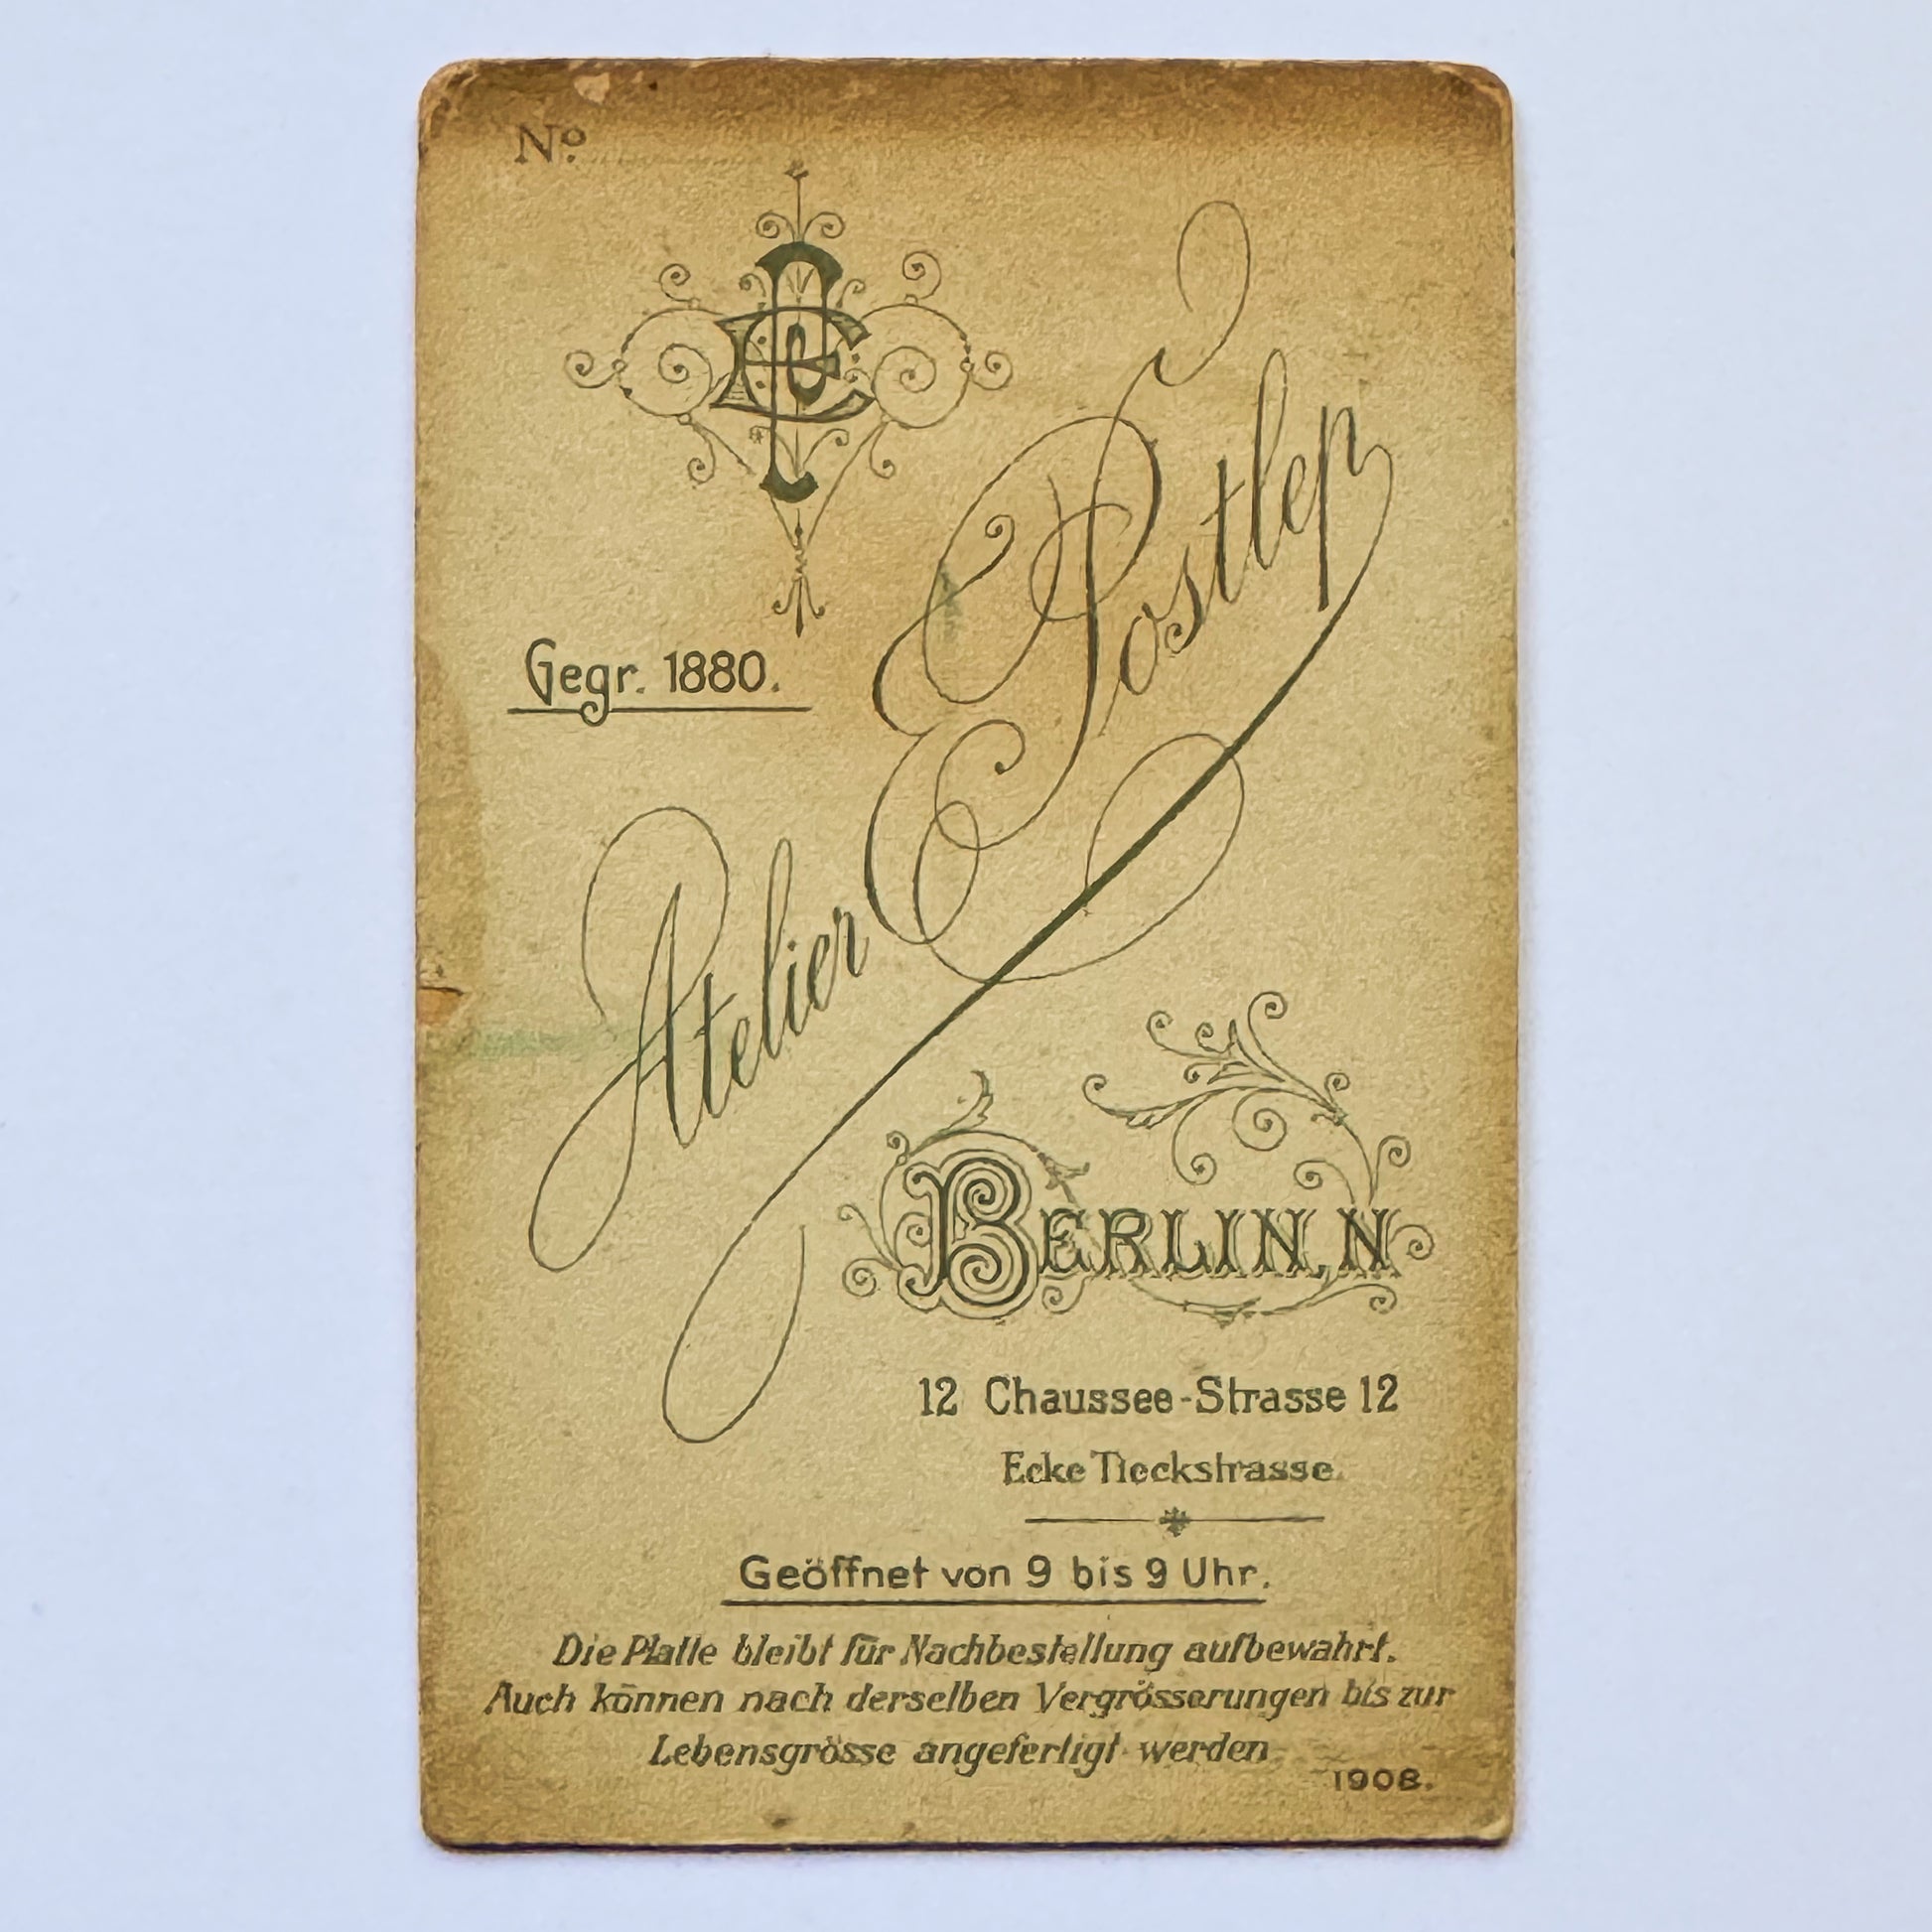 No
EP
Gegr. 1880.
Atelier E Postlep
BERLIN, N
12 Chaussee-Strasse 12
Ecke Tieckstrasse.
Geöffnet von 9 bis 9 Uhr.
Die Platte bleibt für Nachbestellung aufbewahrt.
Auch können nach derselben Vergrösserungen bis zur
Lebensgrösse angefertigt werden
1908.